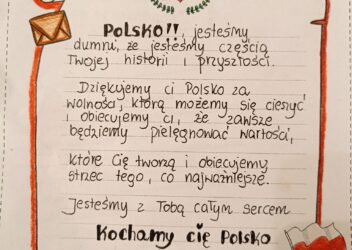 POLSKO!!, jesteśmy
dumni, że jesteśmy częścią
Twojej historii i przyszłości.
Dziękujemy ci Polsko za
wolność, którą możemy się cieszyć
i obiecujemy ci, że zawsze
będziemy pielęgnować wartości,
które Cię tworzą i obiecujemy
strzec tego, co najważniejsze.
Jesteśmy z Tobą całym sercem
Kochamy cię Polsko